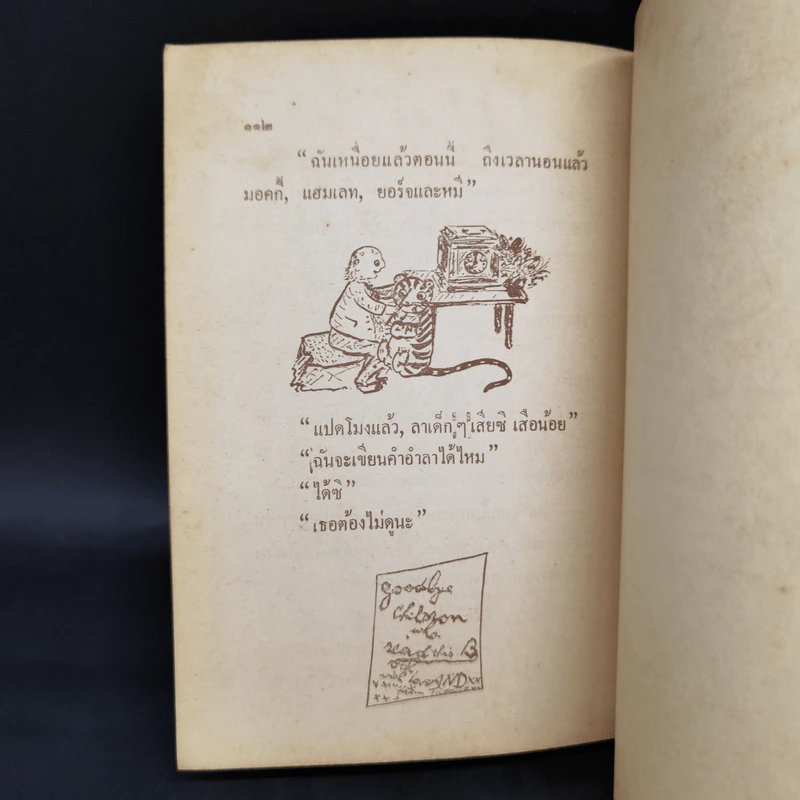 ๑๑๒
“ฉันเหนื่อยแล้วตอนนี้ ถึงเวลานอนแล้ว
มอคกี้, แฮมเลท, ยอร์จและหมี”
“แปดโมงแล้ว, ลาเด็กๆ เสียซิ เสือน้อย”
“ฉันจะเขียนคำอำลาได้ไหม”
“ได้ซิ”
“เธอต้องไม่ดูนะ”
goodbye
children
who